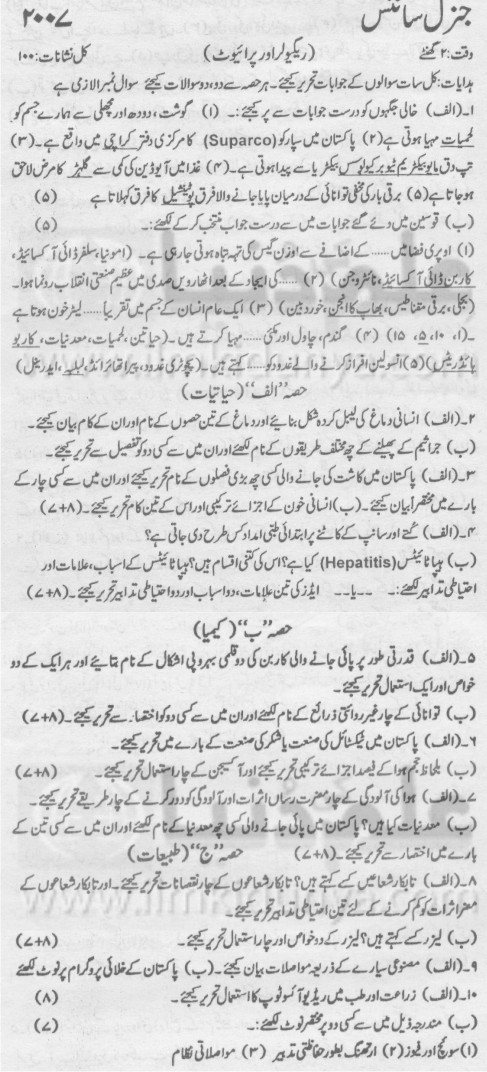 جنرل سائنس ۲۰۰۷
وقت: ۲ گھنٹے (ریگولر اور پرائیوٹ) کل نشانات: ۱۰۰
ہدایات: کل سات سوالوں کے جوابات تحریر کیجئے۔ ہر حصہ سے دو، دو سوالات کیجئے سوال نمبر ا لازی ہے
۱۔(الف) خالی جگہوں کو درست جوابات سے پر کیجئے:۔ (۱) گوشت، دودھ اور مچھلی سے ہمارے جسم کو
لحمیات مہیا ہوتی ہے (۲) پاکستان میں سپارکو (Suparco) کا مرکزی دفتر کراچی میں واقع ہے۔ (۳)
تپ دق مائیوبیکٹریم ٹیوبرکیولوس بیکٹریا سے پیدا ہوتی ہے۔ (۴) غذا میں آیوڈین کی کمی سے گلہڑ کا مرض لاحق
ہو جاتا ہے (۵) برقی بار کی مخفی توانائی کے درمیان پایا جانے والا فرق پوٹینشیل کا فرق کہلاتا ہے (۵)
(ب) قوسین میں دئے گئے جوابات میں سے درست جواب منتخب کر کے لکھئے:۔ (۵)
(۱) اوپری فضا میں ...... کے اضافے سے اوزن گیس کی تہہ تباہ ہوتی جا رہی ہے۔ (امونیا، سلفر ڈائی آکسائیڈ،
کاربن ڈائی آکسائیڈ، نائٹروجن) (۲) ...... کی ایجاد کے بعد اٹھارویں صدی میں عظیم صنعتی انقلاب رونما ہوا۔
(بجلی، برقی مقناطیس، بھاپ کا انجن، خوردبین) (۳) ایک عام انسان کے جسم میں تقریباً ...... لیٹر خون ہوتا ہے
(۱، ۱۰، ۵، ۱۵) (۴) گندم، چاول اور مکئی ..... مہیا کرتے ہیں۔ (حیاتین، لحمیات، معدنیات، کاربو
ہائڈریٹس) (۵) انسولین افراز کرنے والے غدود کو ...... کہتے ہیں۔ (پچوٹری غدود، پیراتھائرائڈ، لبلبہ، ایڈرینل)
حصہ "الف" (حیاتیات)
۲۔(الف) انسانی دماغ کی لیبل کردہ شکل بنائیے اور دماغ کے تین حصوں کے نام اور ان کے کام بیان کیجئے۔
(ب) جراثیم کے پھیلنے کے چھ مختلف طریقوں کے نام لکھئے اور ان میں سے کسی دو کو تفصیل سے تحریر کیجئے۔
۳۔(الف) پاکستان میں کاشت کی جانے والی کسی چھ بڑی فصلوں کے نام تحریر کیجئے اور ان میں سے کسی چار کے
بارے میں مختصراً بیان کیجئے۔ (ب) انسانی خون کے اجزائے ترکیبی اور اس کے تین کام تحریر کیجئے۔ (۷+۸)
۴۔(الف) کتے اور سانپ کے کاٹنے پر ابتدائی طبی امداد کس طرح دی جاتی ہے؟
(ب) ہیپاٹائیٹس (Hepatitis) کیا ہے؟ اس کی کتنی اقسام ہیں؟ ہیپاٹائیٹس کے اسباب، علامات اور
احتیاطی تدابیر لکھئے:۔ --یا-- ایڈز کی تین علامات، دو اسباب اور دو احتیاطی تدابیر تحریر کیجئے۔ (۷+۸)
حصہ "ب" (کیمیا)
۵۔(الف) قدرتی طور پر پائی جانے والی کاربن کی دو قلمی بہروپی اشکال کے نام بتائیے اور ہر ایک کے دو
خواص اور ایک استعمال تحریر کیجئے۔
(ب) توانائی کے چار غیر روائتی ذرائع کے نام لکھئے اور ان میں سے کسی دو کو اختصار سے تحریر کیجئے۔ (۷+۸)
۶۔(الف) پاکستان میں ٹیکسٹائل کی صنعت یا شکر کی صنعت کے بارے میں تحریر کیجئے۔
(ب) بلحاظ حجم ہوا کے فیصد اجزائے ترکیبی تحریر کیجئے اور آکسیجن کے چار استعمال تحریر کیجئے۔ (۷+۸)
۷۔(الف) ہوا کی آلودگی کے چار مضرت رساں اثرات اور آلودگی کو دور کرنے کے چار طریقے تحریر کیجئے۔
(ب) معدنیات کیا ہیں؟ پاکستان میں پائی جانے والی کسی چھ معدنیات کے نام لکھئے اور ان میں سے کسی تین کے
بارے میں اختصار سے تحریر کیجئے۔ (۷+۸) حصہ "ج" (طبیعات)
۸۔(الف) تابکار شعاعیں کسے کہتے ہیں؟ تابکار شعاعوں کے چار نقصانات تحریر کیجئے۔ اور تابکار شعاعوں کے
مضر اثرات کو کم کرنے کے لئے تین احتیاطی تدابیر تحریر کیجئے۔
(ب) لیزر کسے کہتے ہیں؟ لیزر کے دو خواص اور چار استعمال تحریر کیجئے۔ (۷+۸)
۹۔(الف) مصنوعی سیارے کے ذریعہ مواصلات بیان کیجئے۔ (ب) پاکستان کے خلائی پروگرام پر نوٹ لکھئے
۱۰۔(الف) زراعت اور طب میں ریڈیو آکسوٹوپ کا استعمال تحریر کیجئے۔ (۸)
(ب) مندرجہ ذیل میں سے کسی دو پر مختصر نوٹ لکھئے:۔ (۷)
(۱) سوئچ اور فیوز (۲) ارتھنگ بطور حفاظتی تدبیر (۳) مواصلاتی نظام